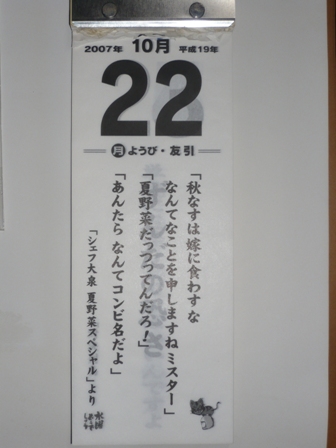 2007年 10月 平成19年
22
月ようび・友引
「秋なすは嫁に食わすな
なんてなことを申しますねミスター」
「夏野菜だっつってんだろ!」
「あんたら なんてコンビ名だよ」
「シェフ大泉 夏野菜スペシャル」より